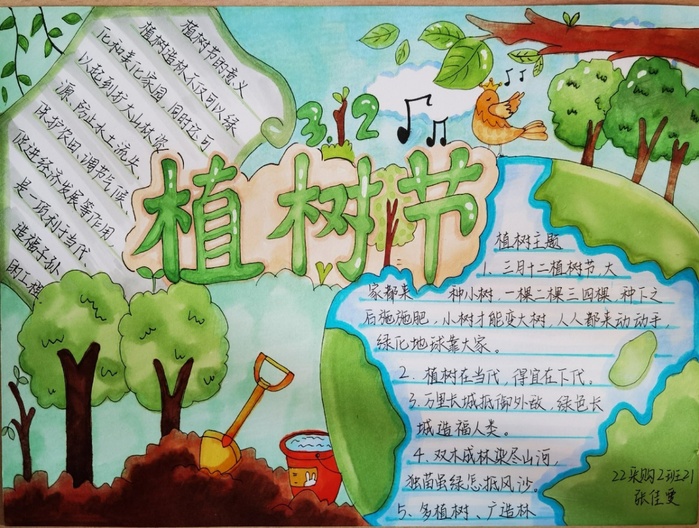 植树节的意义
植树造林不仅可以绿
化和美化家园,同时还可
以起到扩大山林资
源、防止水土流失、
保护农田、调节气候、
促进经济发展等作用,
是一项利于当代、
造福子孙
的工程
3.12
植树节
植树主题
1. 三月十二植树节,大
家都来 种小树,一棵二棵三四棵,种下之
后施施肥,小树才能变大树,人人都来动动手,
绿化地球靠大家。
2、植树在当代,得宜在下代。
3、万里长城抵御外敌,绿色长
城造福人类。
4、双木成林染尽山河,
独苗虽绿怎抵风沙。
5、多植树、广造林
22采购2班21
张佳雯